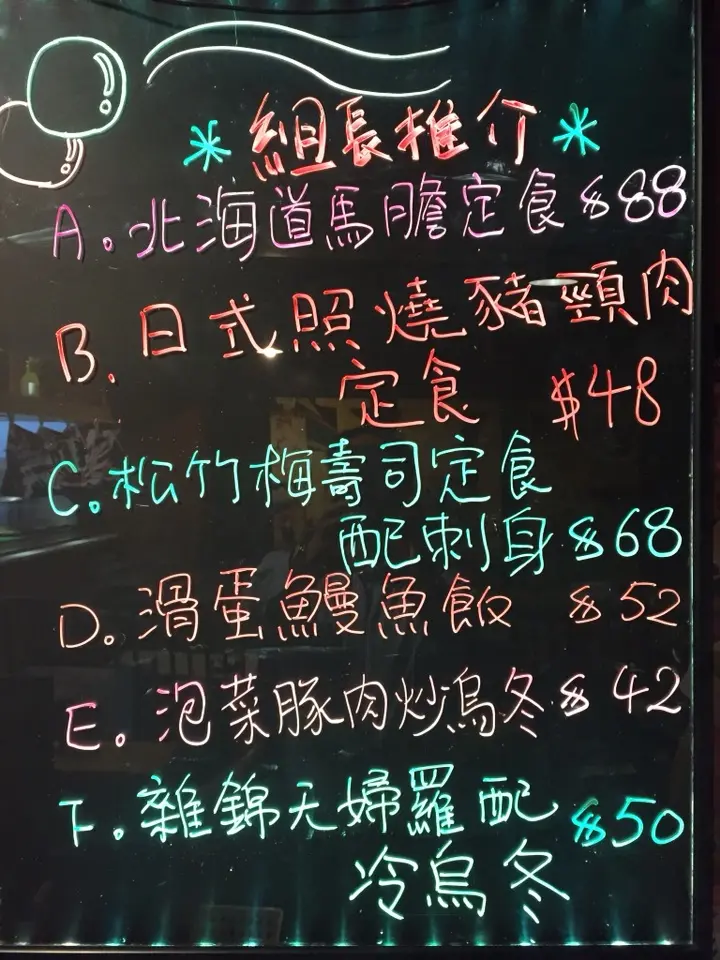 * 組長推介 *
A. 北海道馬膽定食 $88
B. 日式照燒豬頸肉
定食 $48
C. 松竹梅壽司定食
配刺身 $68
D. 滑蛋鰻魚飯 $52
E. 泡菜豚肉炒烏冬 $42
F. 雜錦天婦羅配 $50
冷烏冬